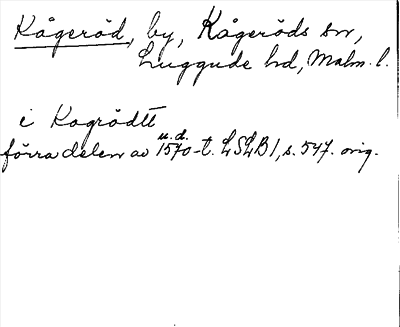 Kågeröd, by, Kågeröds sn,
Luggude hd, Malm. l.
i Kogrödtt
u. d.
förra delen av 1570-t. LSLB 1, s. 547. orig.